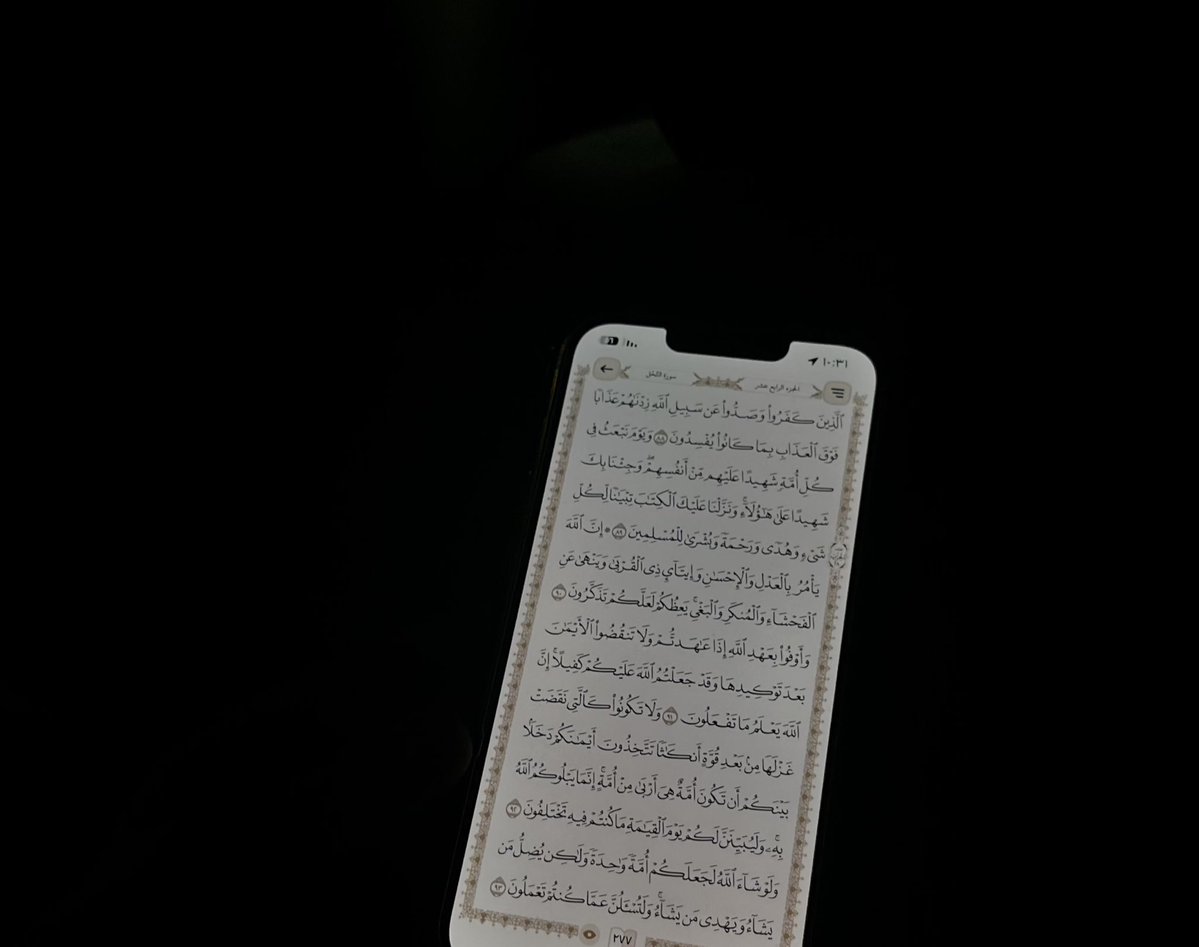 ١٠:٣١
٤٦
الجزء الرابع عشر
سورة النحل
ٱلَّذِينَ كَفَرُوا۟ وَصَدُّوا۟ عَن سَبِيلِ ٱللَّهِ زِدْنَٰهُمْ عَذَابًا
فَوْقَ ٱلْعَذَابِ بِمَا كَانُوا۟ يُفْسِدُونَ ٨٨ وَيَوْمَ نَبْعَثُ فِى
كُلِّ أُمَّةٍ شَهِيدًا عَلَيْهِم مِّنْ أَنفُسِهِمْ ۖ وَجِئْنَا بِكَ
شَهِيدًا عَلَىٰ هَٰٓؤُلَآءِ ۚ وَنَزَّلْنَا عَلَيْكَ ٱلْكِتَٰبَ تِبْيَٰنًا لِّكُلِّ
شَىْءٍ وَهُدًى وَرَحْمَةً وَبُشْرَىٰ لِلْمُسْلِمِينَ ٨٩ ۞ إِنَّ ٱللَّهَ
يَأْمُرُ بِٱلْعَدْلِ وَٱلْإِحْسَٰنِ وَإِيتَآئِ ذِى ٱلْقُرْبَىٰ وَيَنْهَىٰ عَنِ
ٱلْفَحْشَآءِ وَٱلْمُنكَرِ وَٱلْبَغْىِ ۚ يَعِظُكُمْ لَعَلَّكُمْ تَذَكَّرُونَ ٩٠
وَأَوْفُوا۟ بِعَهْدِ ٱللَّهِ إِذَا عَٰهَدتُّمْ وَلَا تَنقُضُوا۟ ٱلْأَيْمَٰنَ
بَعْدَ تَوْكِيدِهَا وَقَدْ جَعَلْتُمُ ٱللَّهَ عَلَيْكُمْ كَفِيلًا ۚ إِنَّ
ٱللَّهَ يَعْلَمُ مَا تَفْعَلُونَ ٩١ وَلَا تَكُونُوا۟ كَٱلَّتِى نَقَضَتْ
غَزْلَهَا مِنۢ بَعْدِ قُوَّةٍ أَنكَٰثًا تَتَّخِذُونَ أَيْمَٰنَكُمْ دَخَلًۢا
بَيْنَكُمْ أَن تَكُونَ أُمَّةٌ هِىَ أَرْبَىٰ مِنْ أُمَّةٍ ۚ إِنَّمَا يَبْلُوكُمُ ٱللَّهُ
بِهِۦ ۚ وَلَيُبَيِّنَنَّ لَكُمْ يَوْمَ ٱلْقِيَٰمَةِ مَا كُنتُمْ فِيهِ تَخْتَلِفُونَ ٩٢
وَلَوْ شَآءَ ٱللَّهُ لَجَعَلَكُمْ أُمَّةً وَٰحِدَةً وَلَٰكِن يُضِلُّ مَن
يَشَآءُ وَيَهْدِى مَن يَشَآءُ ۚ وَلَتُسْـَٔلُنَّ عَمَّا كُنتُمْ تَعْمَلُونَ ٩٣
٢٧٧